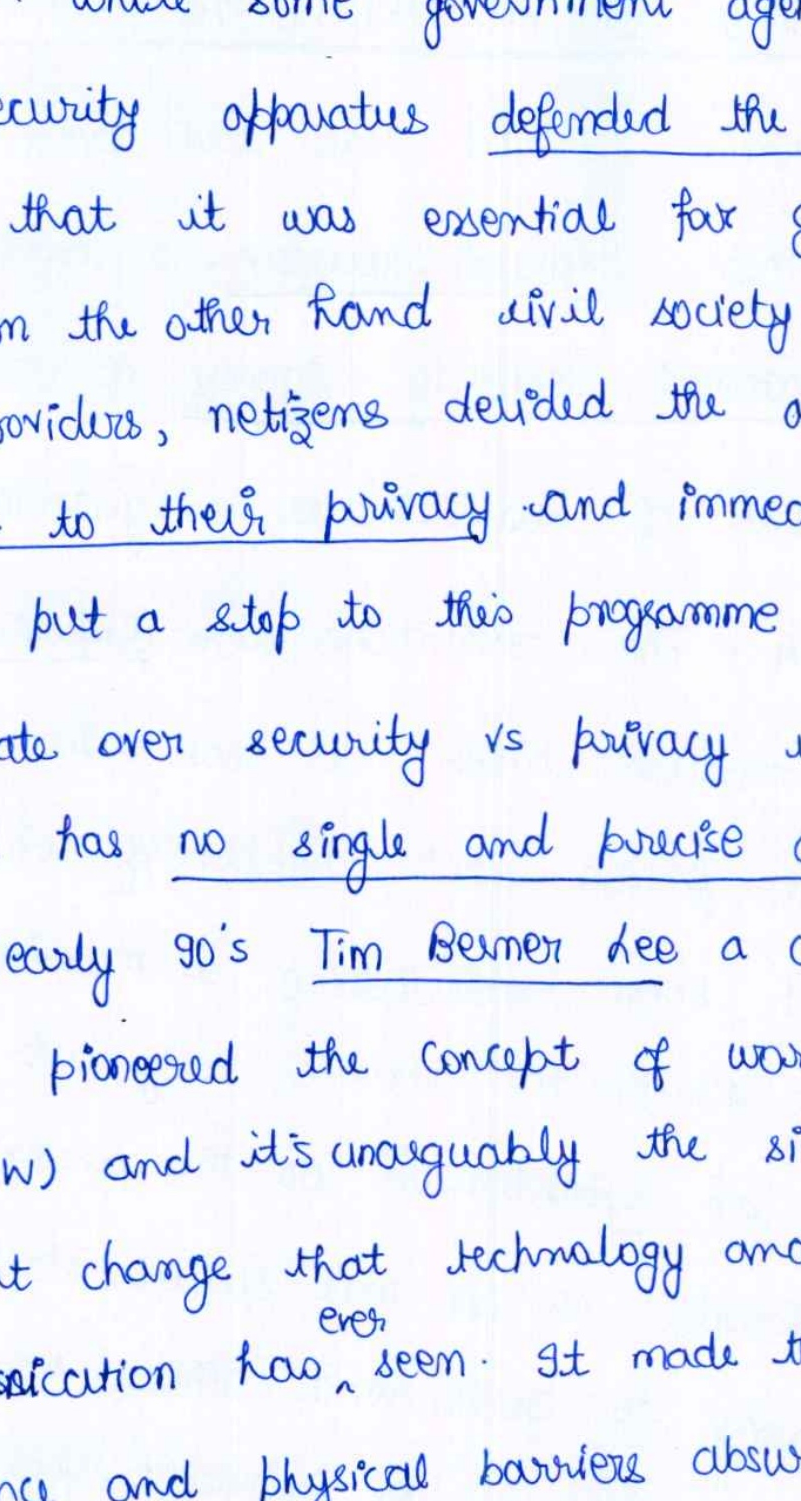 while some government age
ecurity apparatus defended the
that it was essential for g
n the other hand civil society
oviders, netizens derided the a
to their privacy and immed
put a stop to this programme
ate over security vs privacy
has no single and precise
early 90's Tim Berner Lee a c
pioneered the concept of wor
w) and it's unarguably the si
t change that technology and
ication has ever seen. It made t
nce and physical barriers absur